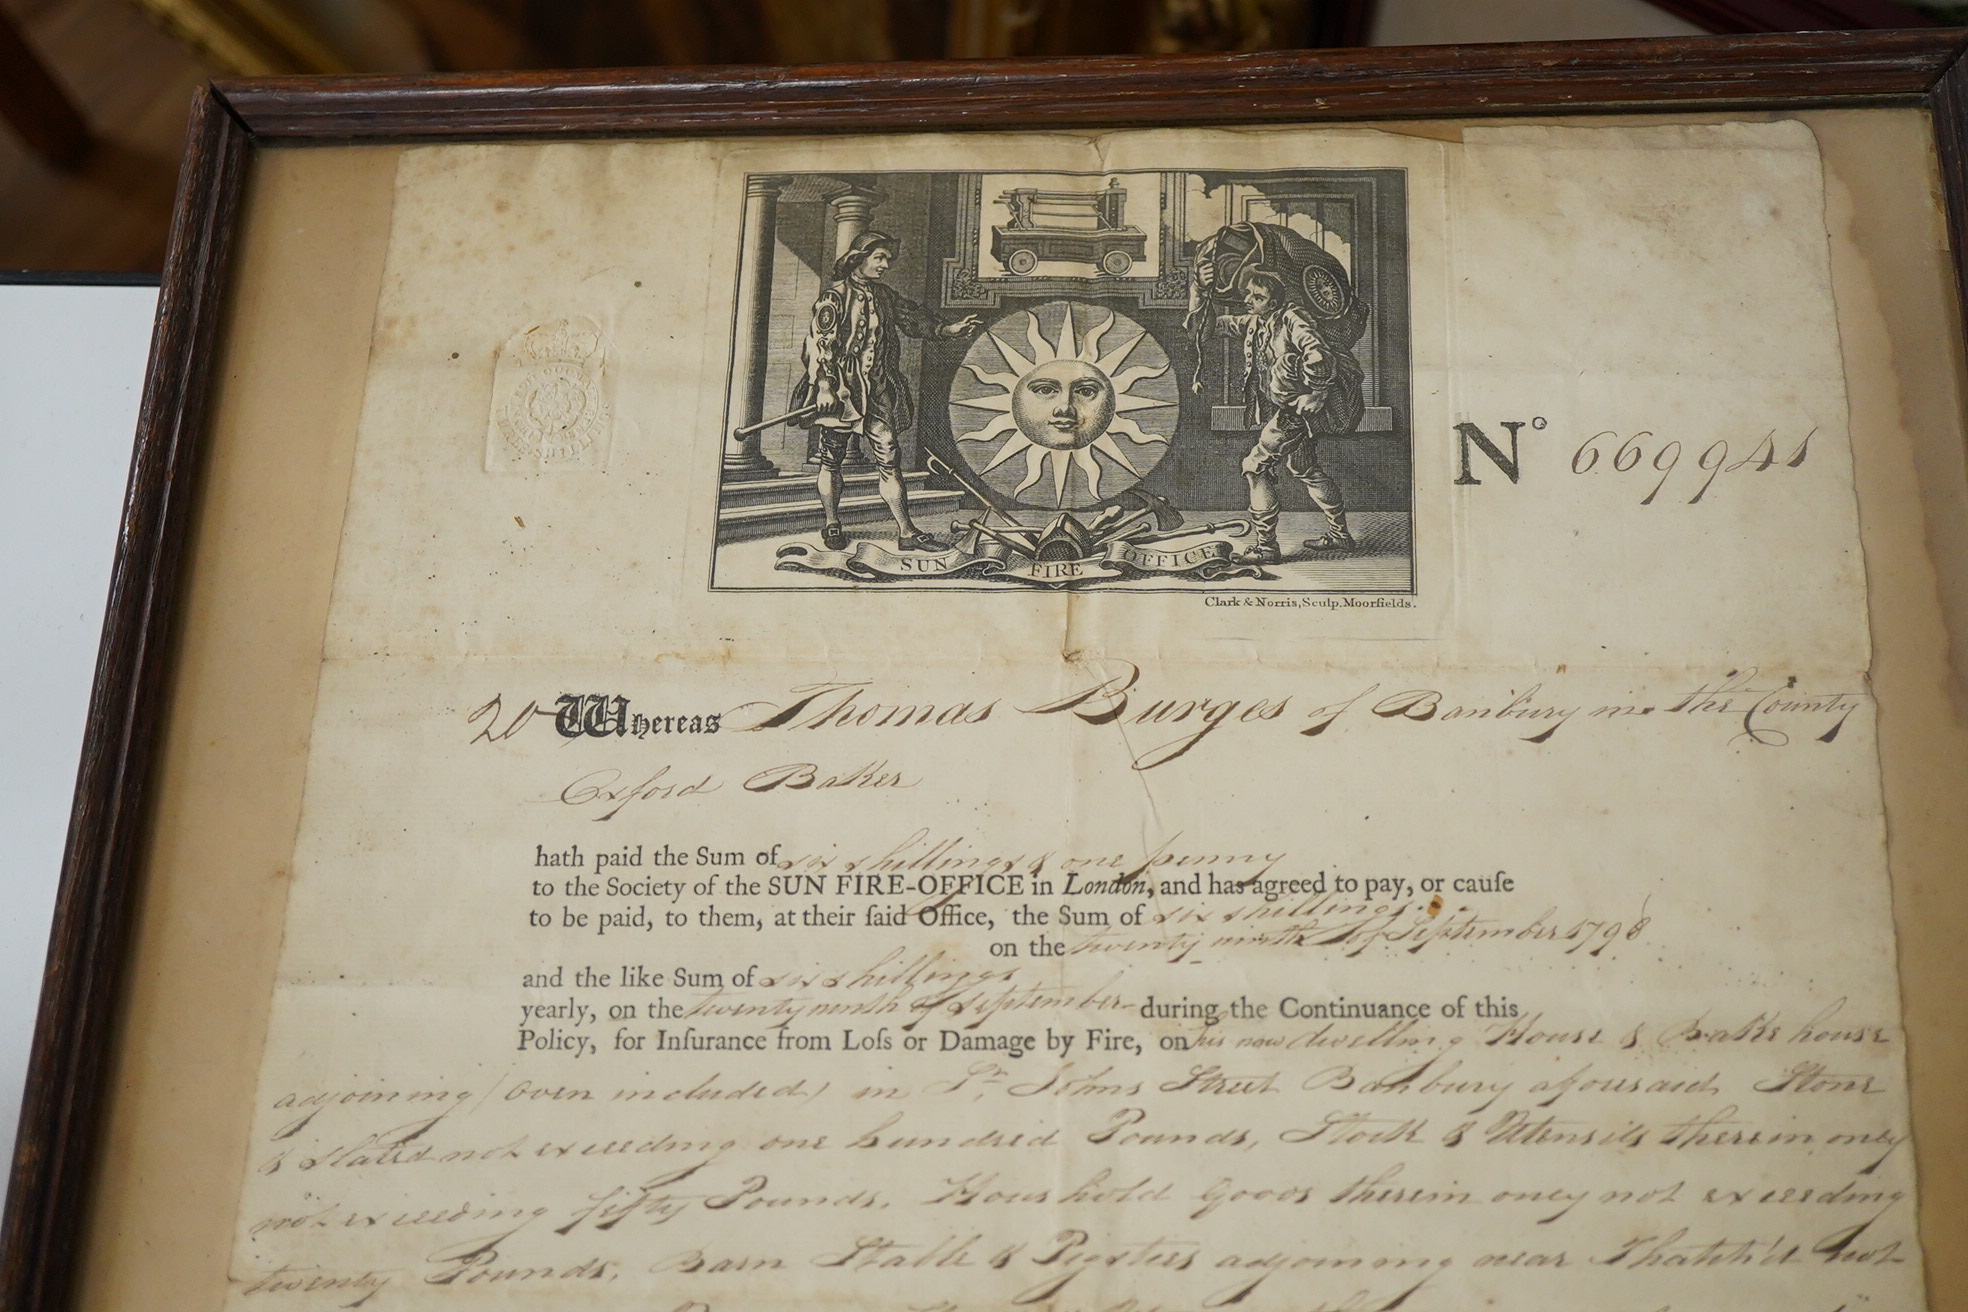 SUN FIRE OFFICE
Clark & Norris, Sculp. Moorfields.
No 669941
20 Whereas Thomas Burges of Banbury in the County
Oxford Baker
hath paid the Sum of six shillings & one penny
to the Society of the SUN FIRE-OFFICE in London, and has agreed to pay, or cauſe
to be paid, to them, at their ſaid Office, the Sum of six shillings
on the twenty ninth of September 1798
and the like Sum of six shillings
yearly, on the twenty ninth of September during the Continuance of this
Policy, for Inſurance from Loſs or Damage by Fire, on his now dwelling House & Bake house
adjoining (Oven included) in St. Johns Street Banbury aforesaid Stone
& Slated not exceeding one hundred Pounds, Stock & Utensils therein only
not exceeding fifty Pounds. Houshold Goods therein only not exceeding
twenty Pounds. Barn Stable & Pigsties adjoining near Thatch'd not